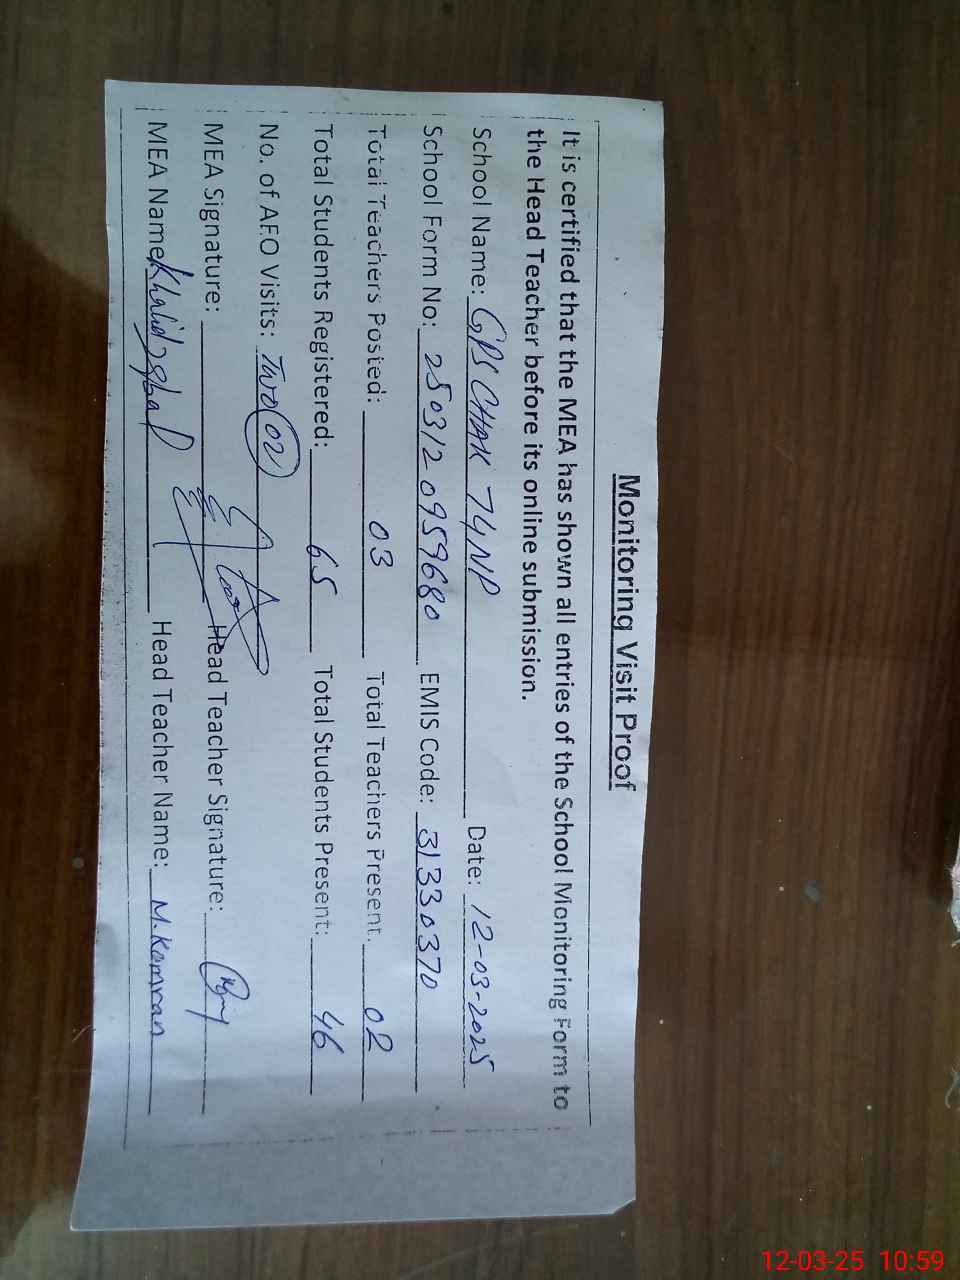 Monitoring Visit Proof
It is certified that the MEA has shown all entries of the School Monitoring Form to
the Head Teacher before its online submission.
School Name: GPS CHAK 74NP Date: 12-03-2025
School Form No: 250312 0959680 EMIS Code: 31330370
Total Teachers Posted: 03 Total Teachers Present. 02
Total Students Registered: 65 Total Students Present: 46
No. of AEO Visits: Two 02
MEA Signature: Head Teacher Signature:
MEA Name: Khalid Iqbal Head Teacher Name: M. Kamran
12-03-25 10:59